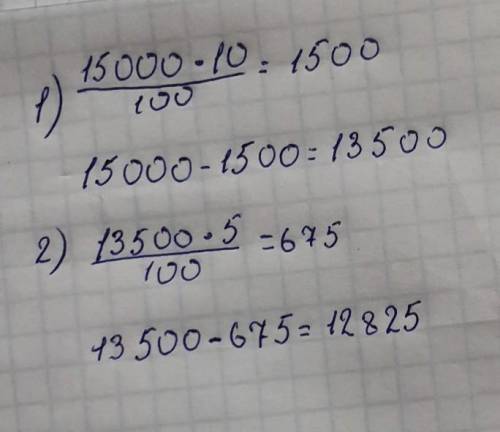 1) 15000 · 10 / 100 = 1500
15000 - 1500 = 13500
2) 13500 · 5 / 100 = 675
13500 - 675 = 12825